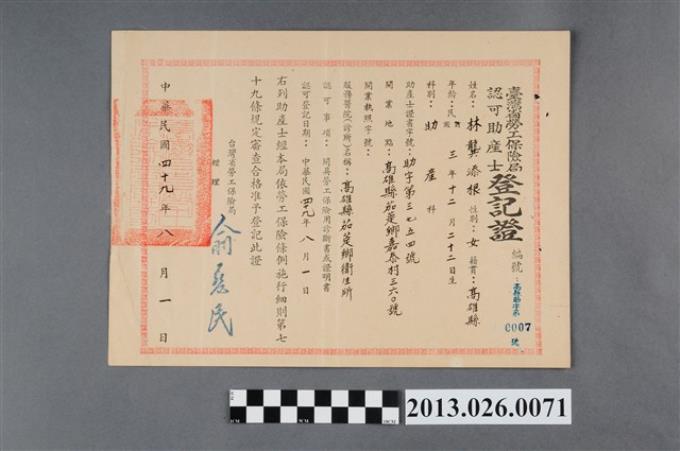 臺灣省勞工保險局
認可助產士登記證
編號：高縣勞字第0007號
姓名：林龔添根 性別：女 籍貫：高雄縣
年齡：民國前 三年十二月二十二日生
科別：助產科
助產士證書字號：助字第三七五四號
開業地點：高雄縣茄萣鄉嘉泰村三六〇號
開業執照字號：
服務醫院(診所)名稱：高雄縣茄萣鄉衛生所
認可事項：開具勞工保險用診斷書或證明書
認可登記日期：中華民國四十九年八月一日
右列助產士經本局依勞工保險條例施行細則第七
十九條規定審查合格准予登記此證
台灣省勞工保險局
總理
中華民國四十九年八月一日
2013.026.0071